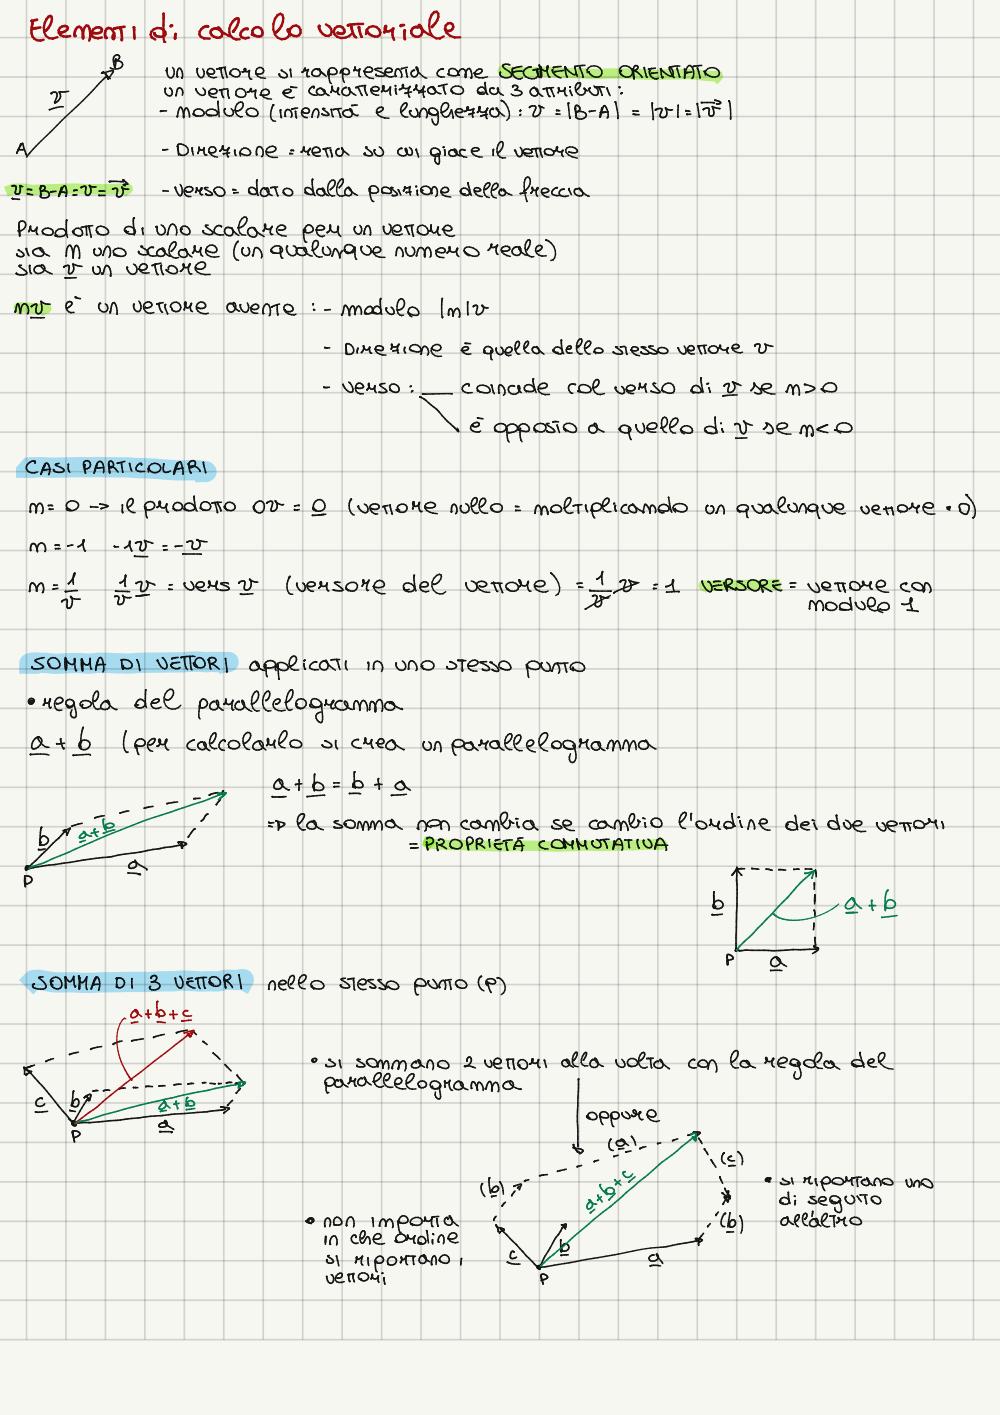 Elementi di calcolo vettoriale
B
v
A
un vettore si rappresenta come SEGMENTO ORIENTATO
un vettore è caratterizzato da 3 attributi:
- modulo (intensità e lunghezza): v = |B-A| = |v| = |v⃗|
- Direzione = retta su cui giace il vettore
v = B-A = v = v⃗ - verso = dato dalla posizione della freccia
Prodotto di uno scalare per un vettore
sia m uno scalare (un qualunque numero reale)
sia v un vettore
mv è un vettore avente : - modulo |m|v
- Direzione è quella dello stesso vettore v
- verso : coincide col verso di v se m>0
è opposto a quello di v se m<0
CASI PARTICOLARI
m = 0 -> il prodotto 0v = 0 (vettore nullo = moltiplicando un qualunque vettore · 0)
m = -1 -1v = -v
m = 1/v 1/v v = vers v (versore del vettore) = 1/v v = 1 VERSORE = vettore con
modulo 1
SOMMA DI VETTORI applicati in uno stesso punto
• regola del parallelogramma
a + b (per calcolarlo si crea un parallelogramma
a + b = b + a
=> la somma non cambia se cambio l'ordine dei due vettori
= PROPRIETÀ COMMUTATIVA
b
a+b
a
P
b
a + b
P
a
SOMMA DI 3 VETTORI nello stesso punto (P)
a+b+c
c
b
a+b
a
P
• si sommano 2 vettori alla volta con la regola del
parallelogramma
oppure
(a)
(c)
(b)
a+b+c
(b)
c
b
a
P
• si riportano uno
di seguito
all'altro
• non importa
in che ordine
si riportano i
vettori